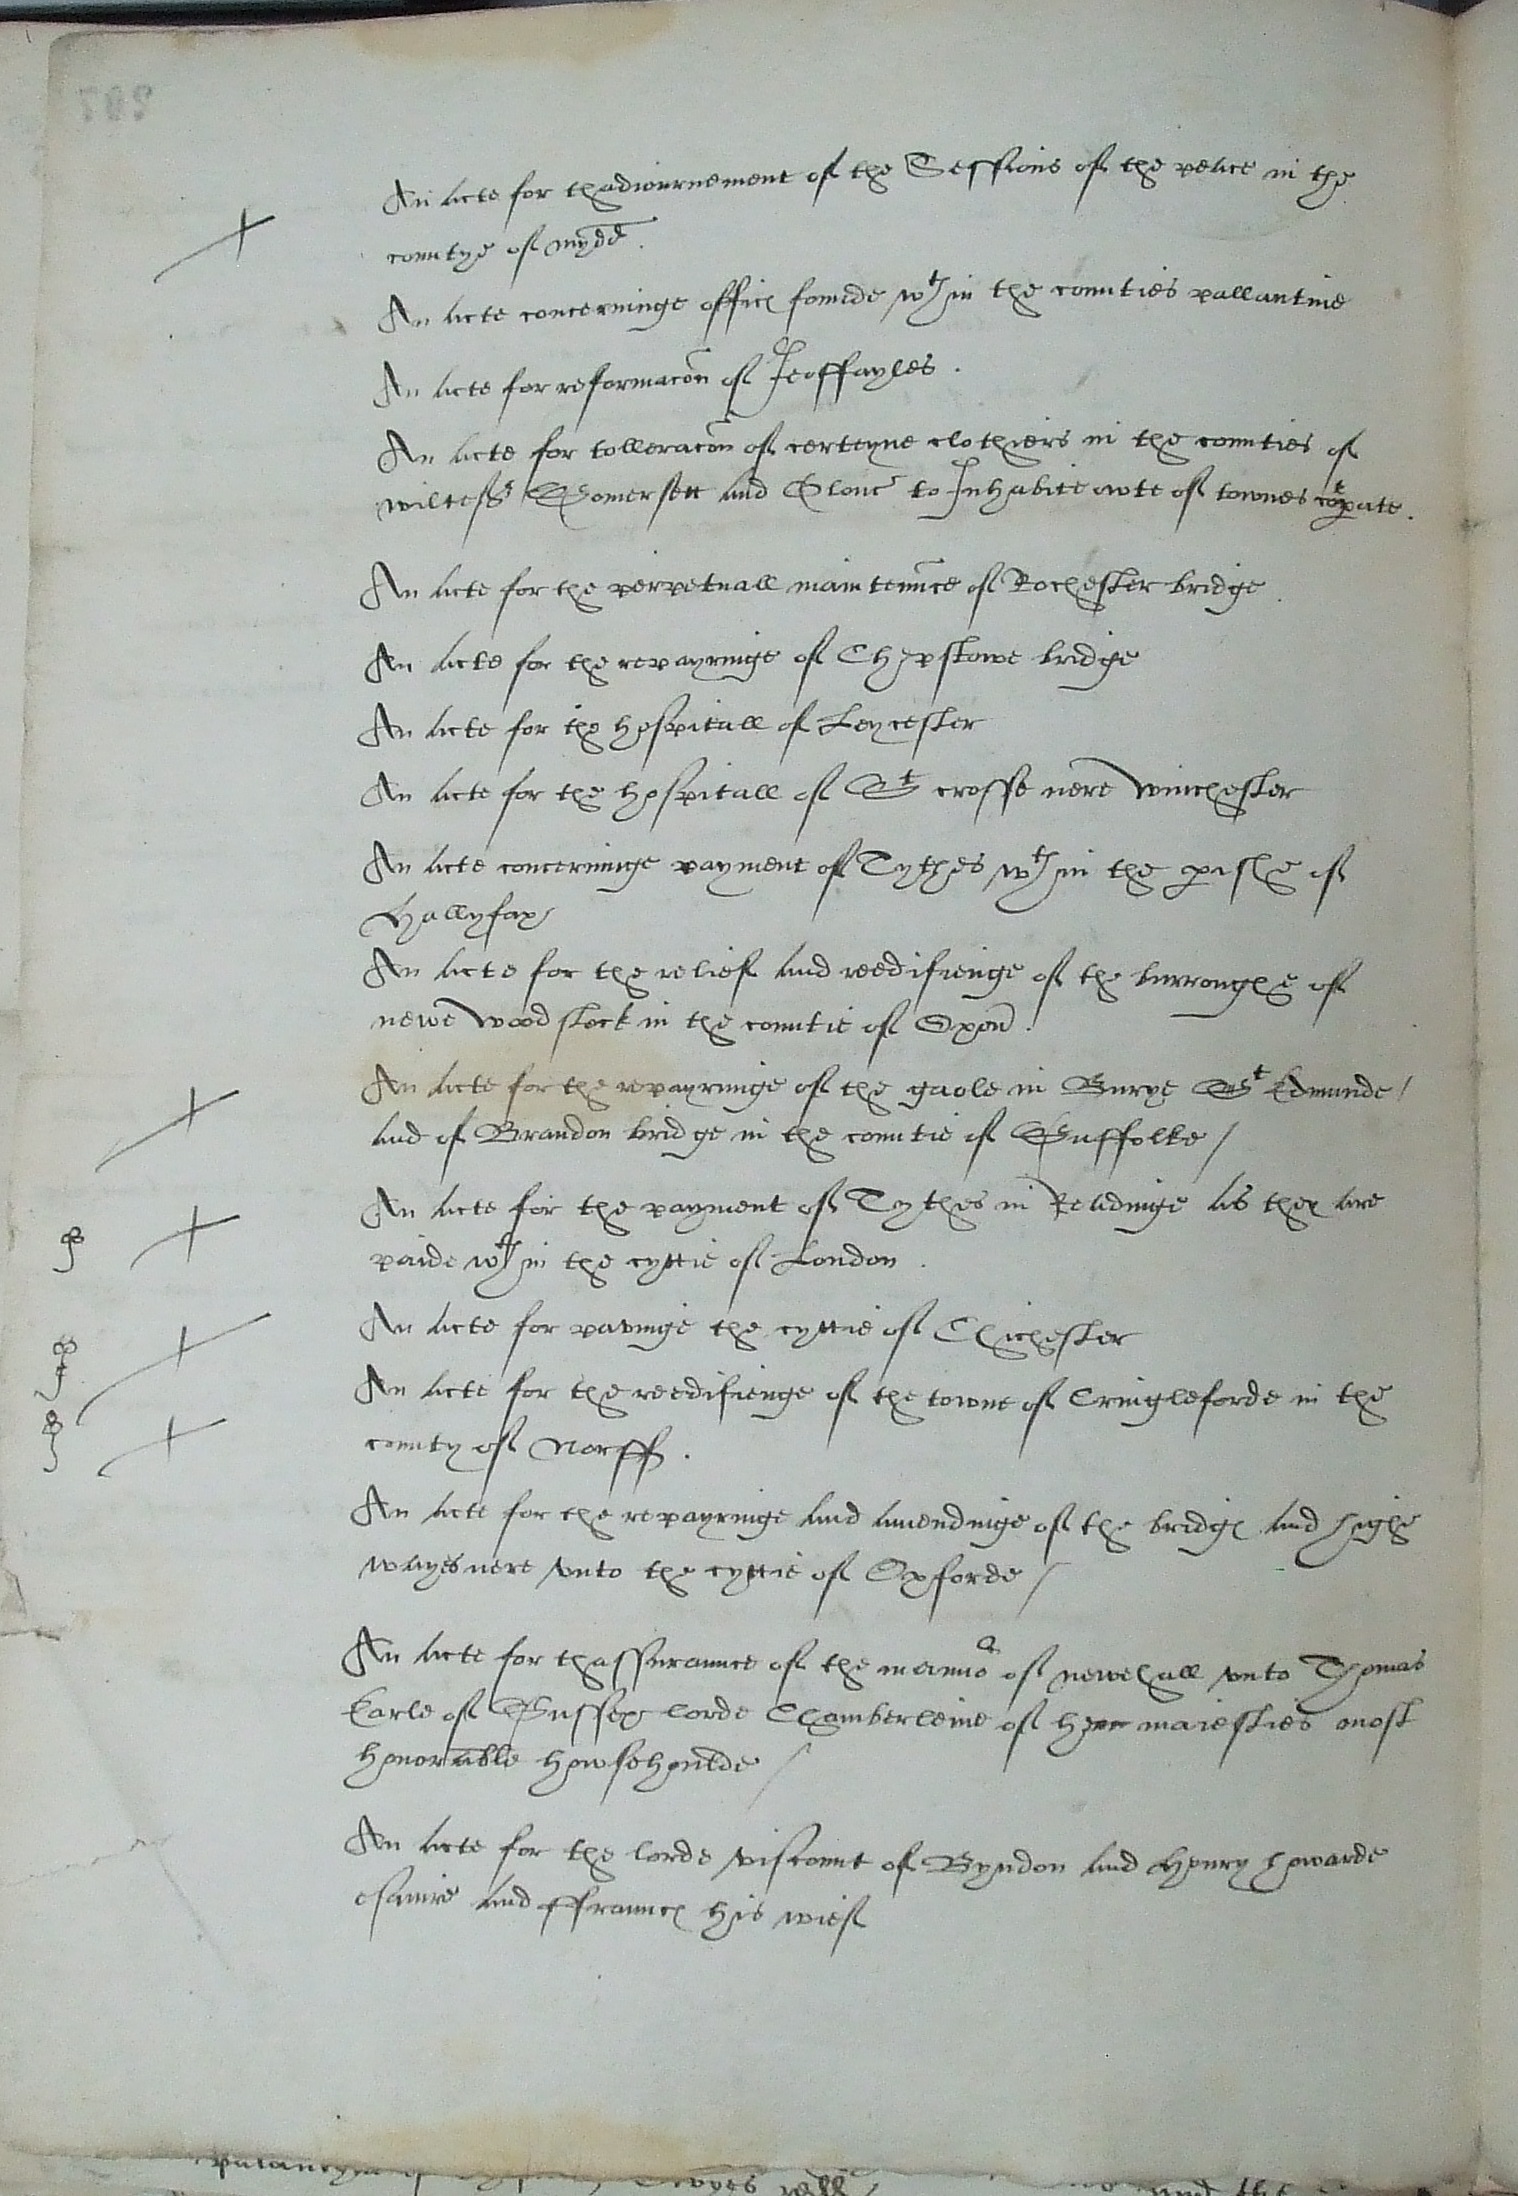 An Acte for thadiournement of the Sessions of the peace in the
countye of mydd.
An Acte concerninge offices founde wth in the counties pallantine
An Acte for reformacon of Jeoffayles.
An Acte for tolleracon of certeyne clothiers in the counties of
wiltess Somersett and Glouc to Inhabite owte of townes corpate.
An Acte for the perpetuall maintenance of Rochester bridge.
An Acte for the repayringe of Chepstowe bridge
An Acte for the hospitall of Leycester
An Acte for the hospitall of St crosse nere winchester
An Acte concerninge payment of Tythes wth in the pishe of
Hallyfax
An Acte for the relief and reedifienge of the burroughe of
newe woodstock in the countie of Oxon.
An Acte for the repayringe of the gaole in Burye St Edmunde/
and of Brandon bridge in the countie of Suffolke /
An Acte for the payment of Tythes in Readinge as they are
paide wth in the cyttie of London.
An Acte for pavinge the cyttie of Chichester
An Acte for the reedifienge of the towne of Cringleforde in the
county of Norff.
An Acte for the repayringe and amendinge of the bridges and highe
wayes nere vnto the cyttie of Oxforde /
An Acte for thassuraunce of the mannor of newehall vnto Thomas
Earle of Sussex lorde Chamberleine of her maiesties most
honorable howsehoulde /
An Acte for the lorde viscount of Byndon and Henry howarde
esquire and ffraunces his wief